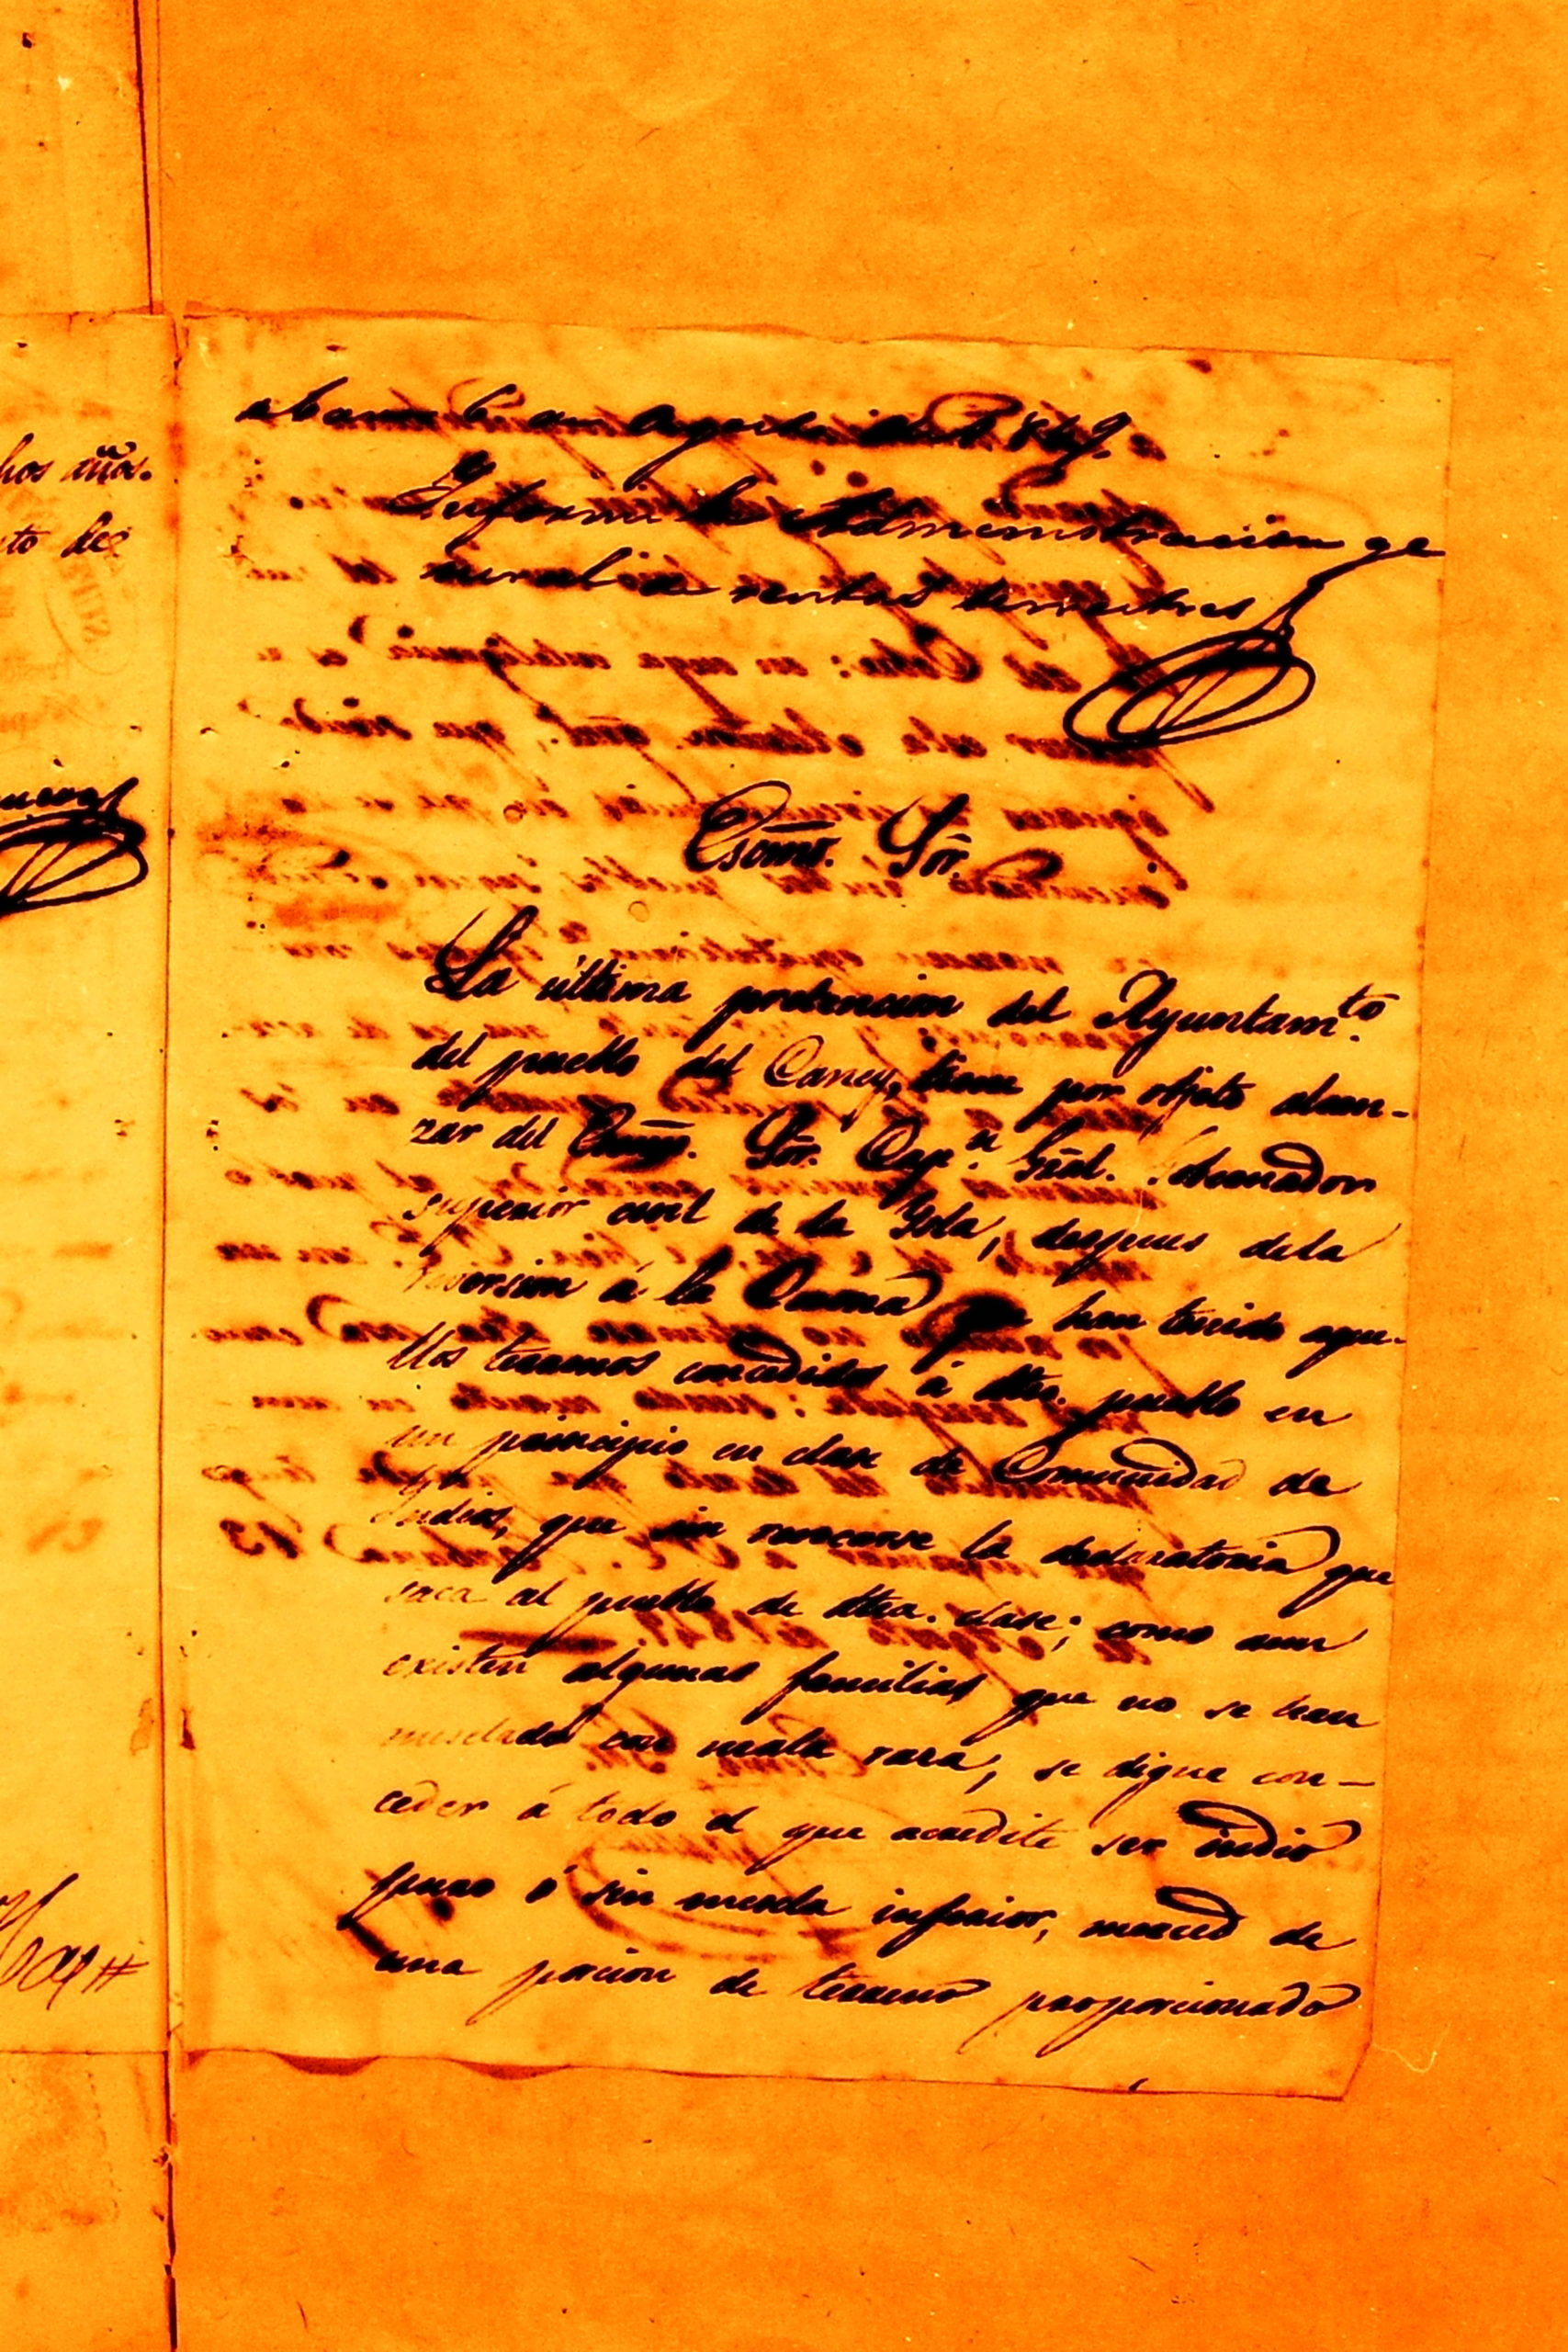 abana 6 de Agosto de 1849.
Informe la Administracion ge
neral de rentas terrestres
Esomo. Sor.
La última pretencion del Ayuntamto.
del pueblo del Caney, tiene por objeto alcan-
zar del Esmo. Sor. Capn. Gral. Gobernador
superior civil de la Ysla, despues dela
reversion á la Corona que han tenido aque-
llos terrenos concedidos á dho. pueblo en
un principio en clase de Comunidad de
Yndios, que sin revocarse la declaratoria que
saca al pueblo de dha. clase; como aun
existen algunas familias que no se han
mesclado con mala raza, se digne con-
ceder á todo el que acredite ser indio
puro ó sin mescla inferior, merced de
una porcion de terreno proporcionado
hos años.
nto de